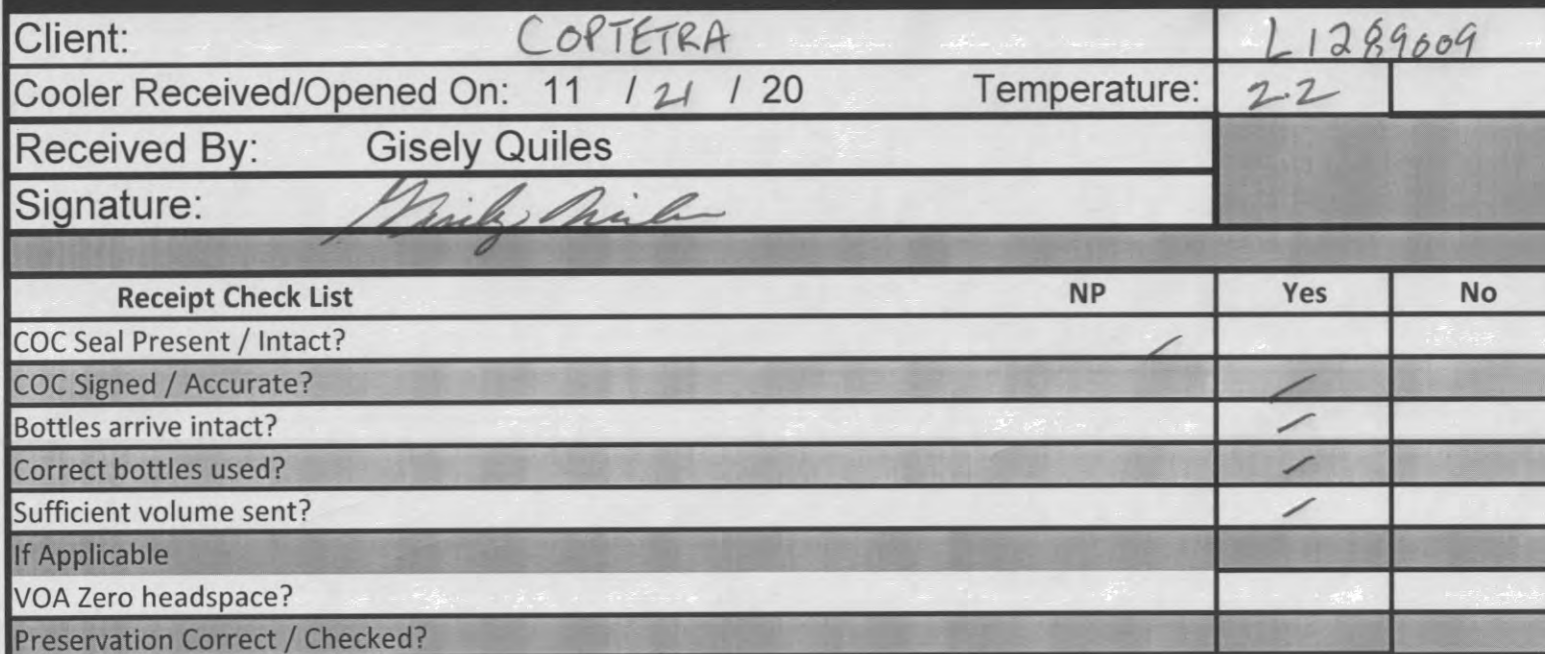 Client: COPTETRA L1289009
Cooler Received/Opened On: 11 / 21 / 20 Temperature: 2.2
Received By: Gisely Quiles
Signature:
Receipt Check List NP Yes No
COC Seal Present / Intact? /
COC Signed / Accurate? /
Bottles arrive intact? /
Correct bottles used? /
Sufficient volume sent? /
If Applicable
VOA Zero headspace?
Preservation Correct / Checked?